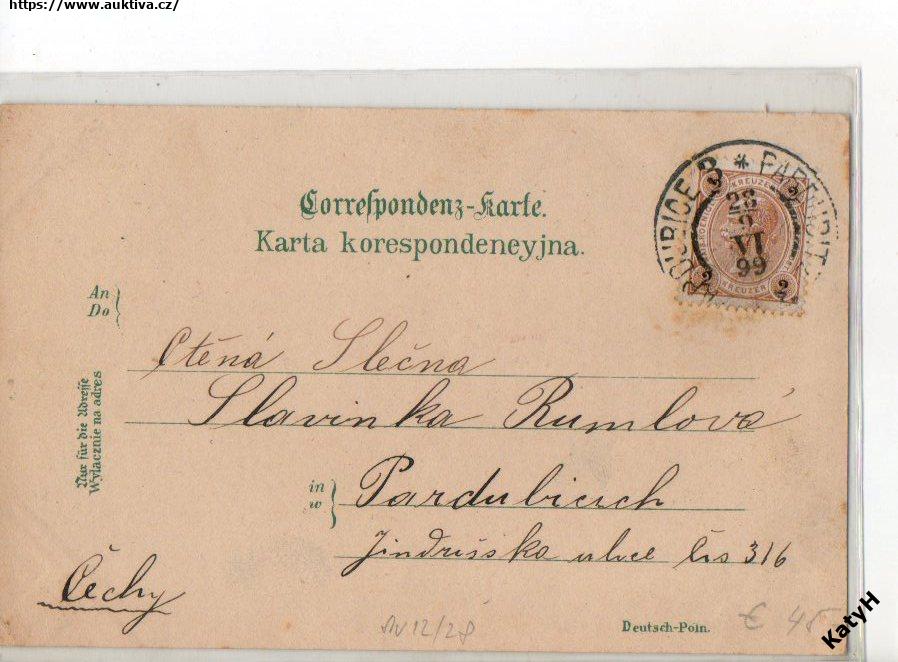 https://www.auktiva.cz/
Correspondenz-Karte.
Karta korespondencyjna.
PARDUBICE 3 * PARDUBITZ
KREUZER
2 2
28
2
VI
99
2 2
KREUZER
An
Do
Ctěná Slečna
Slavinka Rumlová
Nur für die Adresse
Wyłacznie na adres
in
w
Pardubicích
Jindřišska ulice čís 316
Čechy
AV12/28
Deutsch-Poln.
€ 45
KatyH